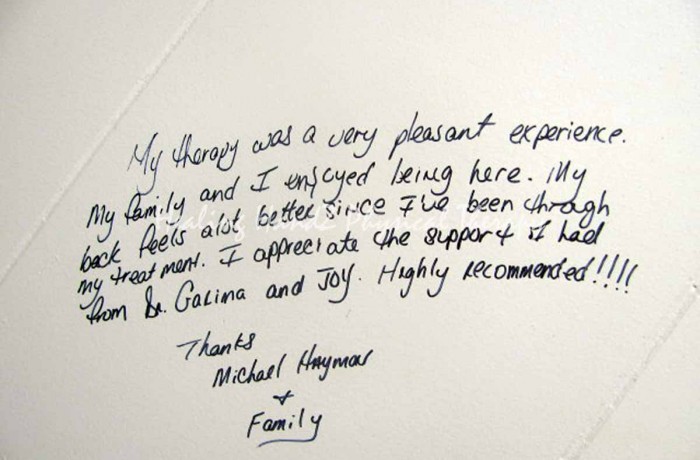 My therapy was a very pleasant experience.
My family and I enjoyed being here. My
back feels alot better since I've been through
my treatment. I appreciate the support I had
from Dr. Galina and Joy. Highly recommended!!!!
Thanks
Michael
+
Family